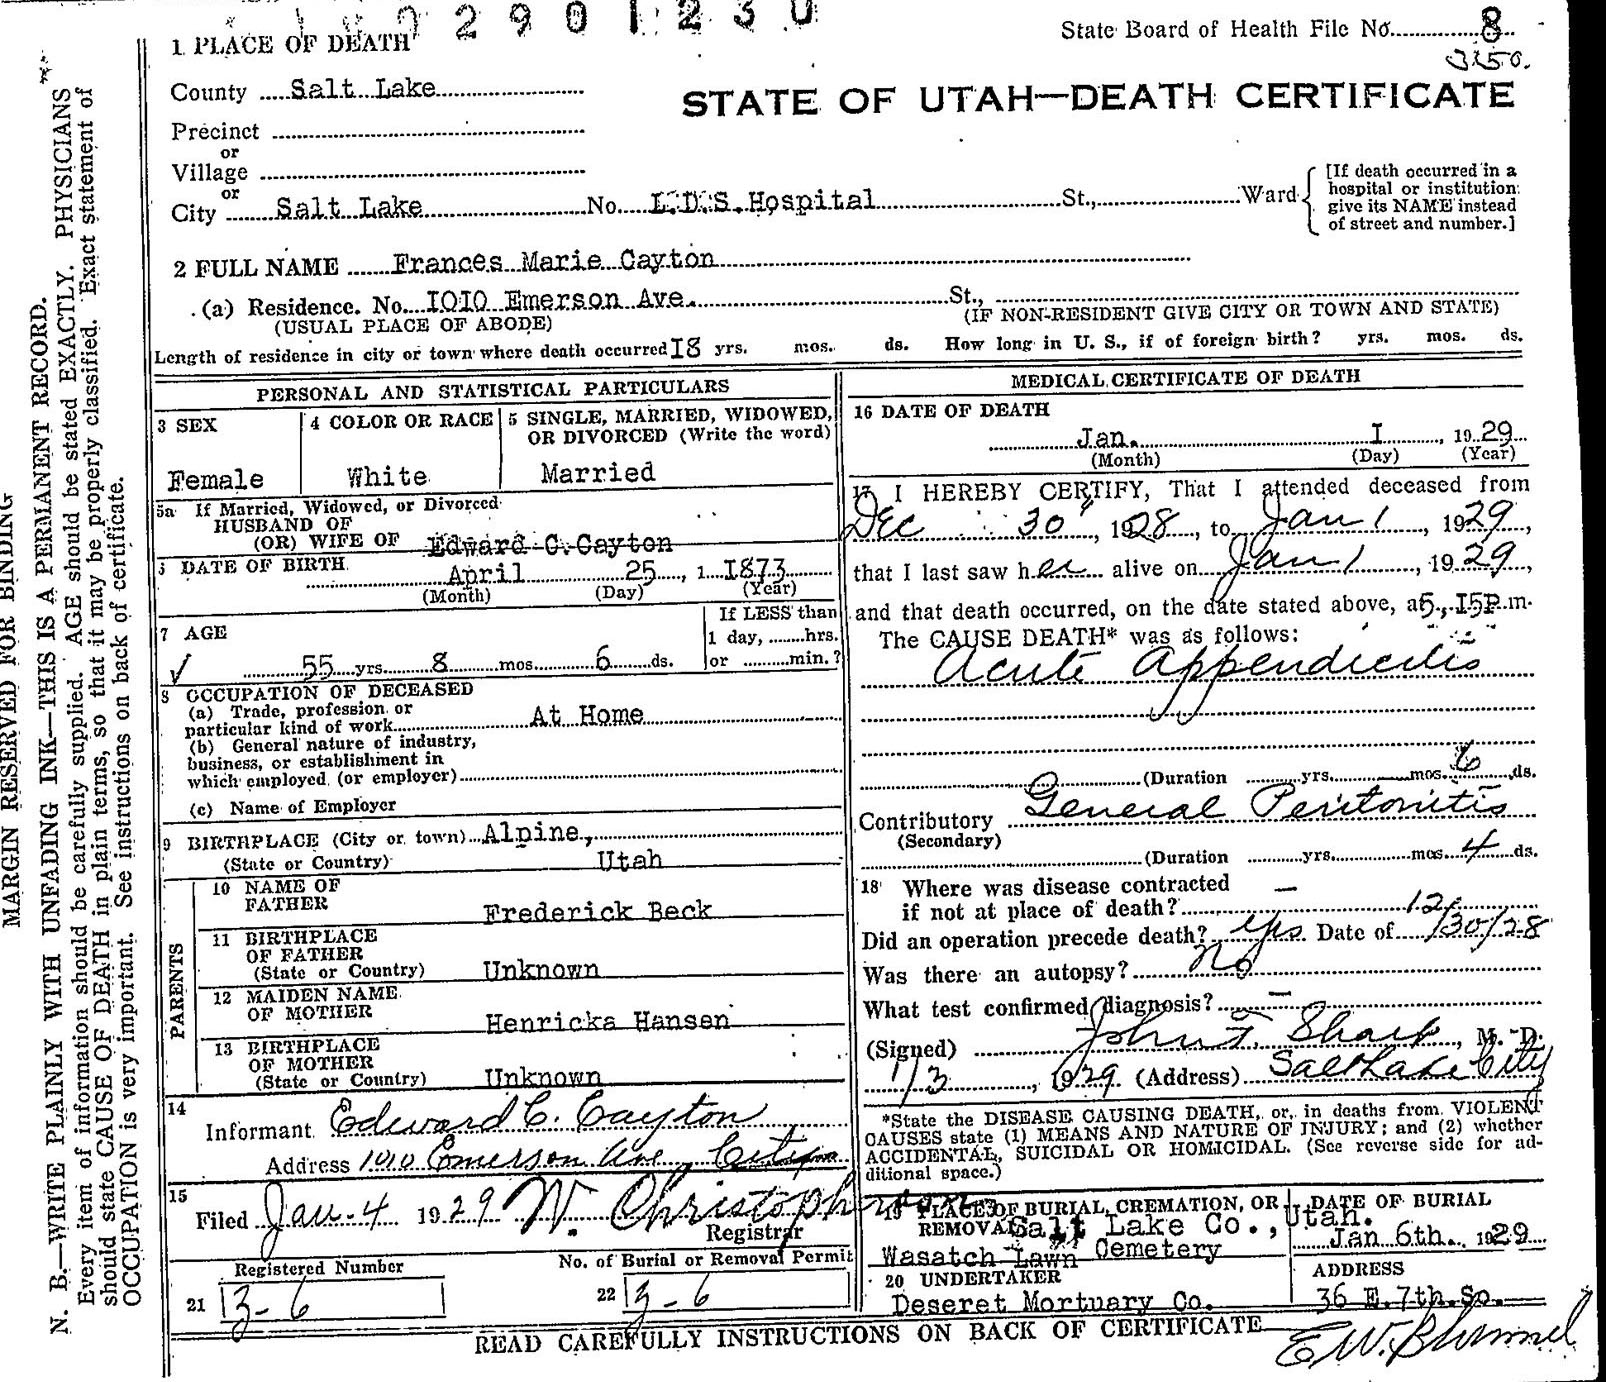 2 9 0 1 2 3 0
State Board of Health File No. 8
3150.
1 PLACE OF DEATH
County Salt Lake
STATE OF UTAH—DEATH CERTIFICATE
Precinct
or
Village
or
City Salt Lake No. L.D.S. Hospital St., Ward
[If death occurred in a
hospital or institution
give its NAME instead
of street and number.]
2 FULL NAME Frances Marie Cayton
(a) Residence. No. IOIO Emerson Ave. St.,
(USUAL PLACE OF ABODE) (IF NON-RESIDENT GIVE CITY OR TOWN AND STATE)
Length of residence in city or town where death occurred I8 yrs. mos. ds. How long in U. S., if of foreign birth? yrs. mos. ds.
PERSONAL AND STATISTICAL PARTICULARS
3 SEX
Female
4 COLOR OR RACE
White
5 SINGLE, MARRIED, WIDOWED,
OR DIVORCED (Write the word)
Married
5a If Married, Widowed, or Divorced
HUSBAND OF
(OR) WIFE OF Edward C. Cayton
6 DATE OF BIRTH
April 25, 1 I873
(Month) (Day) (Year)
7 AGE
√ 55 yrs. 8 mos. 6 ds.
If LESS than
1 day, hrs.
or min.?
8 OCCUPATION OF DECEASED
(a) Trade, profession or
particular kind of work At Home
(b) General nature of industry,
business, or establishment in
which employed (or employer)
(c) Name of Employer
9 BIRTHPLACE (City or town) Alpine,
(State or Country) Utah
PARENTS
10 NAME OF
FATHER Frederick Beck
11 BIRTHPLACE
OF FATHER
(State or Country) Unknown
12 MAIDEN NAME
OF MOTHER Henricka Hansen
13 BIRTHPLACE
OF MOTHER
(State or Country) Unknown
14
Informant Edward C. Cayton
Address 1010 Emerson Ave, City
15
Filed Jan-4 1929 W. Christopherson
Registrar
Registered Number
21 3-6
No. of Burial or Removal Permit
22 3-6
MEDICAL CERTIFICATE OF DEATH
16 DATE OF DEATH
Jan. I, 1929
(Month) (Day) (Year)
17 I HEREBY CERTIFY, That I attended deceased from
Dec 30, 1928, to Jan 1, 1929,
that I last saw her alive on Jan 1, 1929,
and that death occurred, on the date stated above, at 5,I5P.m.
The CAUSE DEATH* was as follows:
Acute Appendicitis
(Duration yrs. mos. 6 ds.
Contributory General Peritonitis
(Secondary)
(Duration yrs. mos. 4 ds.
18 Where was disease contracted —
if not at place of death?
Did an operation precede death? yes Date of 12/30/28
Was there an autopsy? No
What test confirmed diagnosis? —
(Signed) John F. Sharp, M. D.
1/3, 1929 (Address) Salt Lake City
*State the DISEASE CAUSING DEATH, or, in deaths from VIOLENT
CAUSES state (1) MEANS AND NATURE OF INJURY; and (2) whether
ACCIDENTAL, SUICIDAL OR HOMICIDAL. (See reverse side for ad-
ditional space.)
19 PLACE OF BURIAL, CREMATION, OR
REMOVAL Salt Lake Co., Utah.
Wasatch Lawn Cemetery
DATE OF BURIAL
Jan 6th. 1929
20 UNDERTAKER
Deseret Mortuary Co.
ADDRESS
36 E.7th.So.
READ CAREFULLY INSTRUCTIONS ON BACK OF CERTIFICATE
MARGIN RESERVED FOR BINDING
N. B.—WRITE PLAINLY WITH UNFADING INK—THIS IS A PERMANENT RECORD.
Every item of information should be carefully supplied. AGE should be stated EXACTLY. PHYSICIANS
should state CAUSE OF DEATH in plain terms, so that it may be properly classified. Exact statement of
OCCUPATION is very important. See instructions on back of certificate.